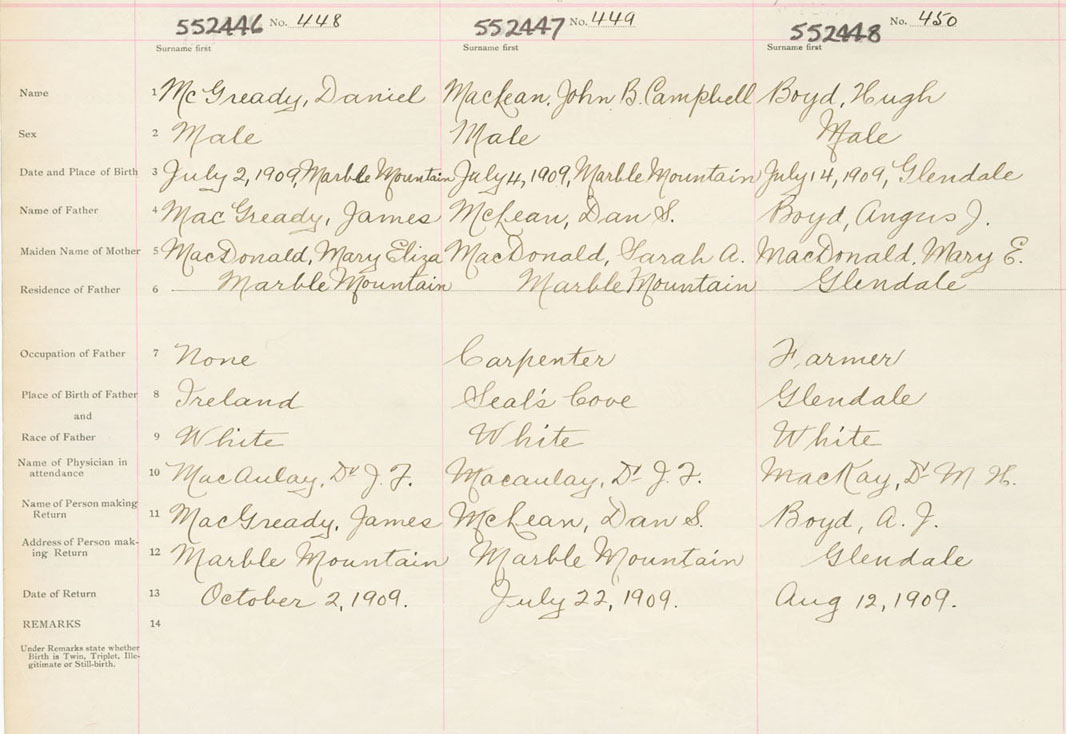 552446 No. 448 552447 No. 449 552448 No. 450
Surname first Surname first Surname first
Name 1 McGready, Daniel MacLean, John B. Campbell Boyd, Hugh
Sex 2 Male Male Male
Date and Place of Birth 3 July 2, 1909, Marble Mountain July 4, 1909, Marble Mountain July 14, 1909, Glendale
Name of Father 4 MacGready, James McLean, Dan S. Boyd, Angus J.
Maiden Name of Mother 5 MacDonald, Mary Eliza MacDonald, Sarah A. MacDonald, Mary E.
Residence of Father 6 Marble Mountain Marble Mountain Glendale
Occupation of Father 7 None Carpenter Farmer
Place of Birth of Father 8 Ireland Seal's Cove Glendale
and
Race of Father 9 White White White
Name of Physician in
attendance 10 MacAulay, Dr J. F. Macaulay, Dr J. F. MacKay, Dr M H.
Name of Person making
Return 11 MacGready, James McLean, Dan S. Boyd, A. J.
Address of Person mak-
ing Return 12 Marble Mountain Marble Mountain Glendale
Date of Return 13 October 2, 1909. July 22, 1909. Aug 12, 1909.
REMARKS 14
Under Remarks state whether
Birth is Twin, Triplet, Ille-
gitimate or Still-birth.